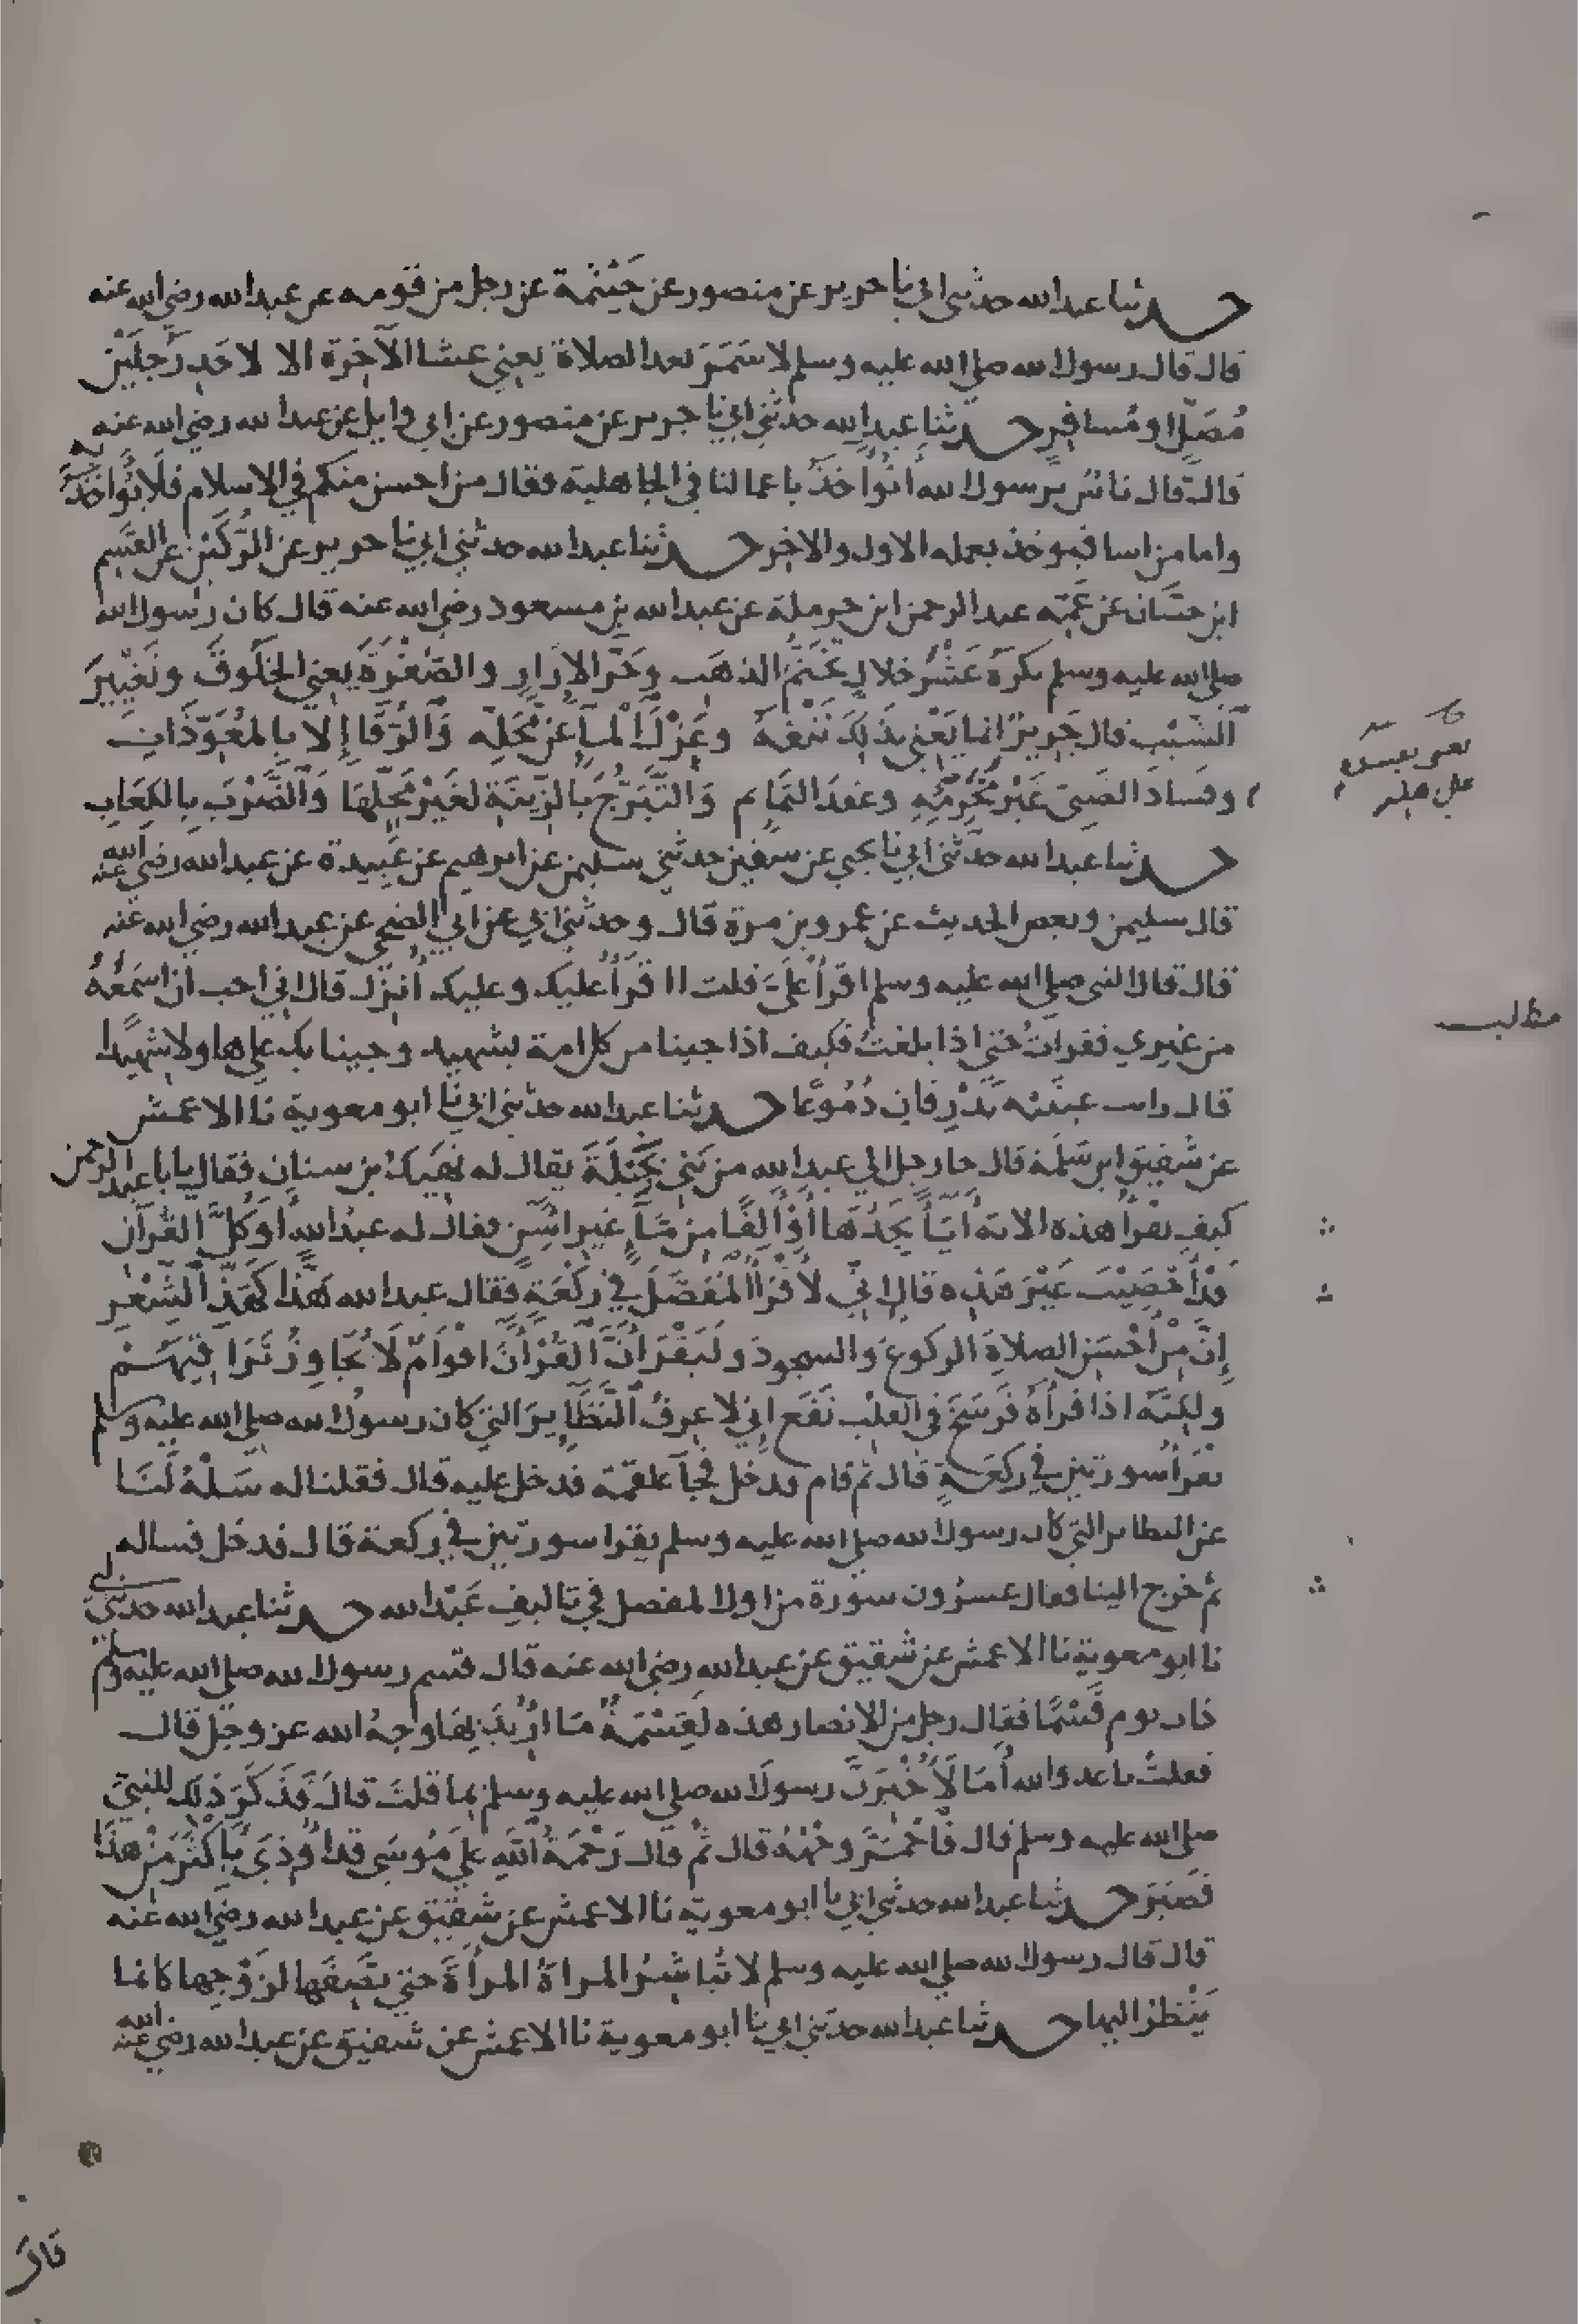 حدثنا عبد الله حدثني ابي نا جرير عن منصور عن خيثمة عن رجل من قومه عن عبد الله رضي الله عنه
قال قال رسول الله صلى الله عليه وسلم لا سمر بعد الصلاة يعني عشا الآخرة الا لاحد رجلين
مصل او مسافر حدثنا عبد الله حدثني ابي نا جرير عن منصور عن ابي وايل عن عبد الله رضي الله عنه
قال قال ناس يرسول الله أنؤاخذ باعمالنا في الجاهلية فقال من احسن منكم في الاسلام فلا يؤاخذ به
واما من اسا فيوخذ بعمله الاول والاخر حدثنا عبد الله حدثني ابي نا جرير عن الركين عن القسم
ابن حسان عن عمه عبد الرحمن ابن حرملة عن عبد الله بن مسعود رضي الله عنه قال كان رسول الله
صلى الله عليه وسلم يكره عشر خلال تختم الذهب وجر الإزار والصفرة يعني الخلوق وتغيير
الشيب قال جرير انما يعني بذلك نتفه وعزل المآ عن محله والرقا إلا بالمعوذات
وفساد الصبي غير محرمه وعقد التمايم والتبرج بالزينة لغير محلها والضرب بالكعاب
حدثنا عبد الله حدثني ابي نا يحيى عن سفين حدثني سليمن عن ابرهيم عن عبيدة عن عبد الله رضي الله عنه
قال سليمن وبعض الحديث عن عمرو بن مرة قال وحدثني ابي عن ابي الضحى عن عبد الله رضي الله عنه
قال قال النبي صلى الله عليه وسلم اقرأ علي قلت ااقرأ عليك وعليك أنزل قال اني احب ان اسمعه
من غيري فقرات حتى اذا بلغت فكيف اذا جينا من كل امة بشهيد وجينا بك على هاولا شهيدا
قال رايت عينيه تذرفان دموعا حدثنا عبد الله حدثني ابي نا ابو معوية نا الاعمش
عن شقيق ابن سلمة قال جا رجل الى عبد الله من بني بجيلة يقال له نهيك بن سنان فقال يابا عبد الرحمن
كيف تقرأ هذه الاية أيآ تجدها أو ألفا من مآ غير اسن فقال له عبد الله أوكل القرآن
قد أحصيت غير هذه قال إني لأقرأ المفصل في ركعة فقال عبد الله هذا كهذ الشعر
إن من أحسن الصلاة الركوع والسجود وليقرأن القرآن اقوام لا يجاوز تراقيهم
ولكنه اذا قرأه فرسخ في القلب نفع اني لاعرف النظاير التي كان رسول الله صلى الله عليه وسلم
يقرأ سورتين في ركعة قال ثم قام فدخل فجآ علقمة فدخل عليه قال فقلنا له سله لنا
عن النظاير التي كان رسول الله صلى الله عليه وسلم يقرا سورتين في ركعة قال فدخل فساله
ثم خرج الينا فقال عشرون سورة من اول المفصل في تاليف عبد الله حدثنا عبد الله حدثني ابي
نا ابو معوية نا الاعمش عن شقيق عن عبد الله رضي الله عنه قال قسم رسول الله صلى الله عليه وسلم
ذات يوم قسما فقال رجل من الانصار هذه لقسمة ما اريد بها وجه الله عز وجل قال
فقلت ياعدو الله أما لأخبرن رسول الله صلى الله عليه وسلم بما قلت قال فذكر ذلك للنبي
صلى الله عليه وسلم قال فاحمر وجهه قال ثم قال رحمة الله على موسى قد أوذي بأكثر من هذا
فصبر حدثنا عبد الله حدثني ابي نا ابو معوية نا الاعمش عن شقيق عن عبد الله رضي الله عنه
قال قال رسول الله صلى الله عليه وسلم لا تباشر المراة المرأة حتى تصفها لزوجها كانما
ينظر اليها حدثنا عبد الله حدثني ابي نا ابو معوية نا الاعمش عن شقيق عن عبد الله رضي الله عنه
مطلب
قال